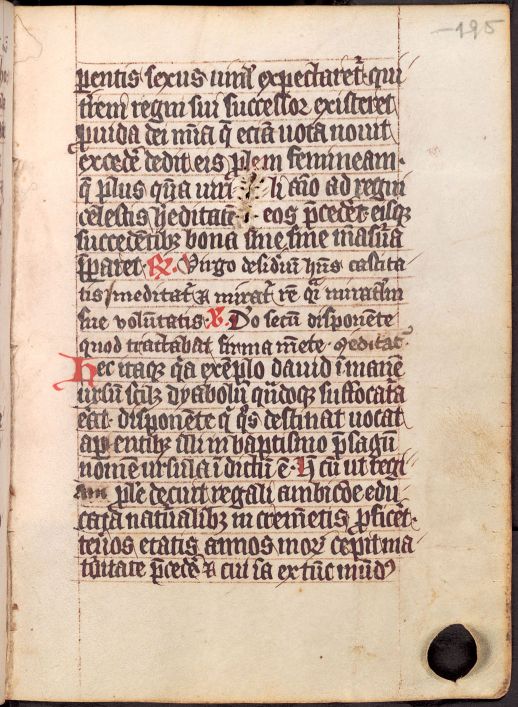 -195
pentis sexus viril expectaret qui
item regni sui successor existeret
puida dei mia q̄ eciā uota nouit
excedē dedit eis plem femineam·
q̄ plus qm̄ uiri h aīo ad regni
celestis heditatē eos pcedēt eisq̄
succedētibꝫ bona sine fine mansura
spparet· R̄. Virgo desideriū hn̄s castita
tis meditat̄ ⁊ mirat̄ rē
sue volūtatis· V̄ Do secū disponēte
quod tractabat firma mēte· meditat̄
Hec itaq̄ qā exēplo dauid īmanē
ursū scilꝫ dyabolū qn̄doq̄ suffocat̄a
eāt· disponēte q̄ q̄s destinat uocat
a pentibꝫ illi in baptismo psagū
nomē ursula īdictū ē· h̄ cū ut regi
am plē decuit regali ambicōe edu
cata natu̅alibꝫ in cremētis pficēt
tenos etatis annos mor cepit ma
turitate pcedē ⁊ cui ia ex tūc mūdꝰ